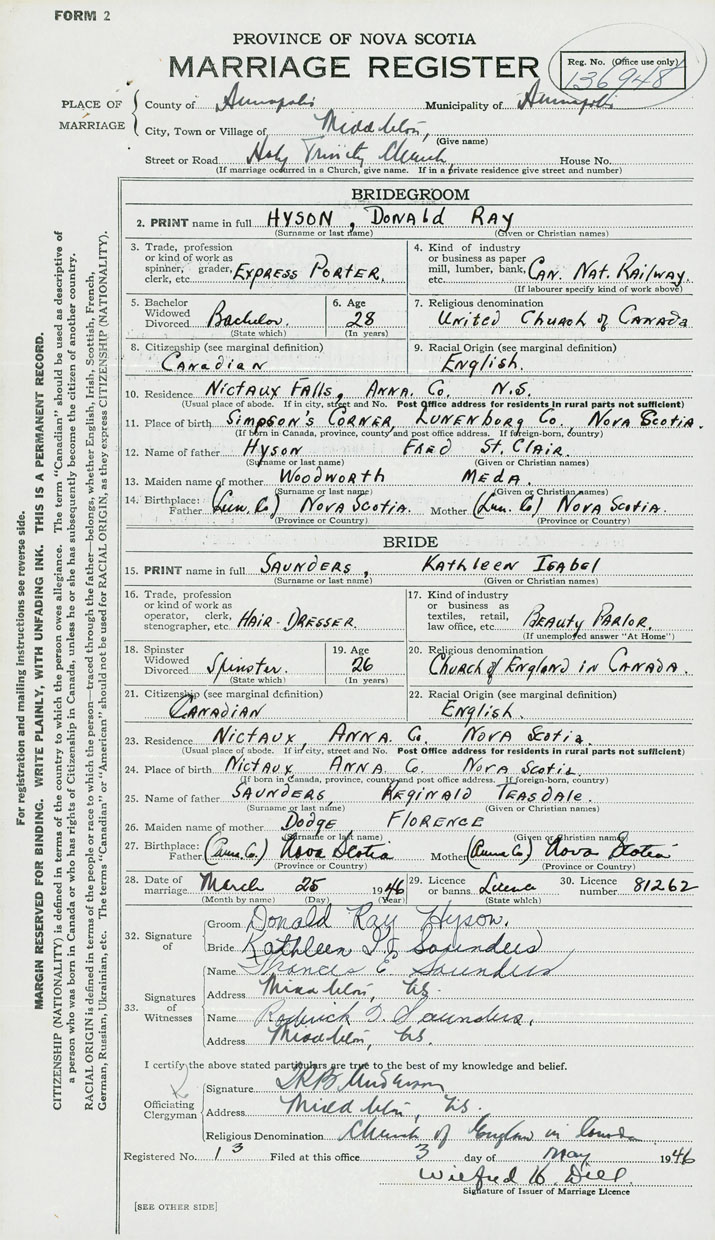 FORM 2
PROVINCE OF NOVA SCOTIA
MARRIAGE REGISTER
Reg. No. (Office use only)
136948
PLACE OF MARRIAGE
County of Annapolis Municipality of Annapolis
City, Town or Village of Middleton,
(Give name)
Street or Road Holy Trinity Church, House No.
(If marriage occurred in a Church, give name. If in a private residence give street and number)
BRIDEGROOM
2. PRINT name in full HYSON, DONALD RAY
(Surname or last name) (Given or Christian names)
3. Trade, profession or kind of work as spinner, grader, clerk, etc. EXPRESS PORTER.
4. Kind of industry or business as paper mill, lumber, bank, etc. CAN. NAT. RAILWAY.
(If labourer specify kind of work above)
5. Bachelor Widowed Divorced Bachelor.
(State which)
6. Age 28
(In years)
7. Religious denomination UNITED CHURCH of CANADA
8. Citizenship (see marginal definition) CANADIAN
9. Racial Origin (see marginal definition) ENGLISH.
10. Residence NICTAUX FALLS, ANNA. CO. N.S.
(Usual place of abode. If in city, street and No. Post Office address for residents in rural parts not sufficient)
11. Place of birth SIMPSON'S CORNER, LUNENBURG CO., NOVA SCOTIA.
(If born in Canada, province, county and post office address. If foreign-born, country)
12. Name of father HYSON FRED ST. CLAIR.
(Surname or last name) (Given or Christian names)
13. Maiden name of mother WOODWORTH MEDA.
(Surname or last name) (Given or Christian names)
14. Birthplace: Father (Lun. Co) NOVA SCOTIA. Mother (Lun. Co) NOVA SCOTIA.
(Province or Country) (Province or Country)
BRIDE
15. PRINT name in full SAUNDERS, KATHLEEN ISABEL
(Surname or last name) (Given or Christian names)
16. Trade, profession or kind of work as operator, clerk, stenographer, etc. HAIR-DRESSER
17. Kind of industry or business as textiles, retail, law office, etc. BEAUTY PARLOR.
(If unemployed answer "At Home")
18. Spinster Widowed Divorced Spinster.
(State which)
19. Age 26
(In years)
20. Religious denomination CHURCH of ENGLAND IN CANADA.
21. Citizenship (see marginal definition) CANADIAN
22. Racial Origin (see marginal definition) ENGLISH.
23. Residence NICTAUX, ANNA. CO. NOVA SCOTIA.
(Usual place of abode. If in city, street and No. Post Office address for residents in rural parts not sufficient)
24. Place of birth NICTAUX, ANNA. CO. NOVA SCOTIA.
(If born in Canada, province, county and post office address. If foreign-born, country)
25. Name of father SAUNDERS, REGINALD TEASDALE.
(Surname or last name) (Given or Christian names)
26. Maiden name of mother DODGE FLORENCE
(Surname or last name) (Given or Christian names)
27. Birthplace: Father (Anna. Co.) Nova Scotia Mother (Anna. Co) Nova Scotia
(Province or Country) (Province or Country)
28. Date of marriage March 25 1946
(Month by name) (Day) (Year)
29. Licence or banns Licence
(State which)
30. Licence number 81262
32. Signature of
Groom Donald Ray Hyson.
Bride Kathleen I. Saunders
33. Signatures of Witnesses
Name Frances E Saunders
Address Middleton, N.S.
Name Roderick D. Saunders,
Address Middleton, N.S.
I certify the above stated particulars are true to the best of my knowledge and belief.
Officiating Clergyman
Signature Anderson
Address Middleton, N.S.
Religious Denomination Church of England in Canada
Registered No. 13 Filed at this office 3 day of May 1946
Wilfred Dill.
Signature of Issuer of Marriage Licence
[SEE OTHER SIDE]
For registration and mailing instructions see reverse side.
MARGIN RESERVED FOR BINDING. WRITE PLAINLY, WITH UNFADING INK. THIS IS A PERMANENT RECORD.
CITIZENSHIP (NATIONALITY) is defined in terms of the country to which the person owes allegiance. The term "Canadian" should be used as descriptive of
a person who was born in Canada or who has rights of Citizenship in Canada, unless he or she has subsequently become the citizen of another country.
RACIAL ORIGIN is defined in terms of the people or race to which the person—traced through the father—belongs, whether English, Irish, Scottish, French,
German, Russian, Ukrainian, etc. The terms "Canadian" or "American" should not be used for RACIAL ORIGIN, as they express CITIZENSHIP (NATIONALITY).